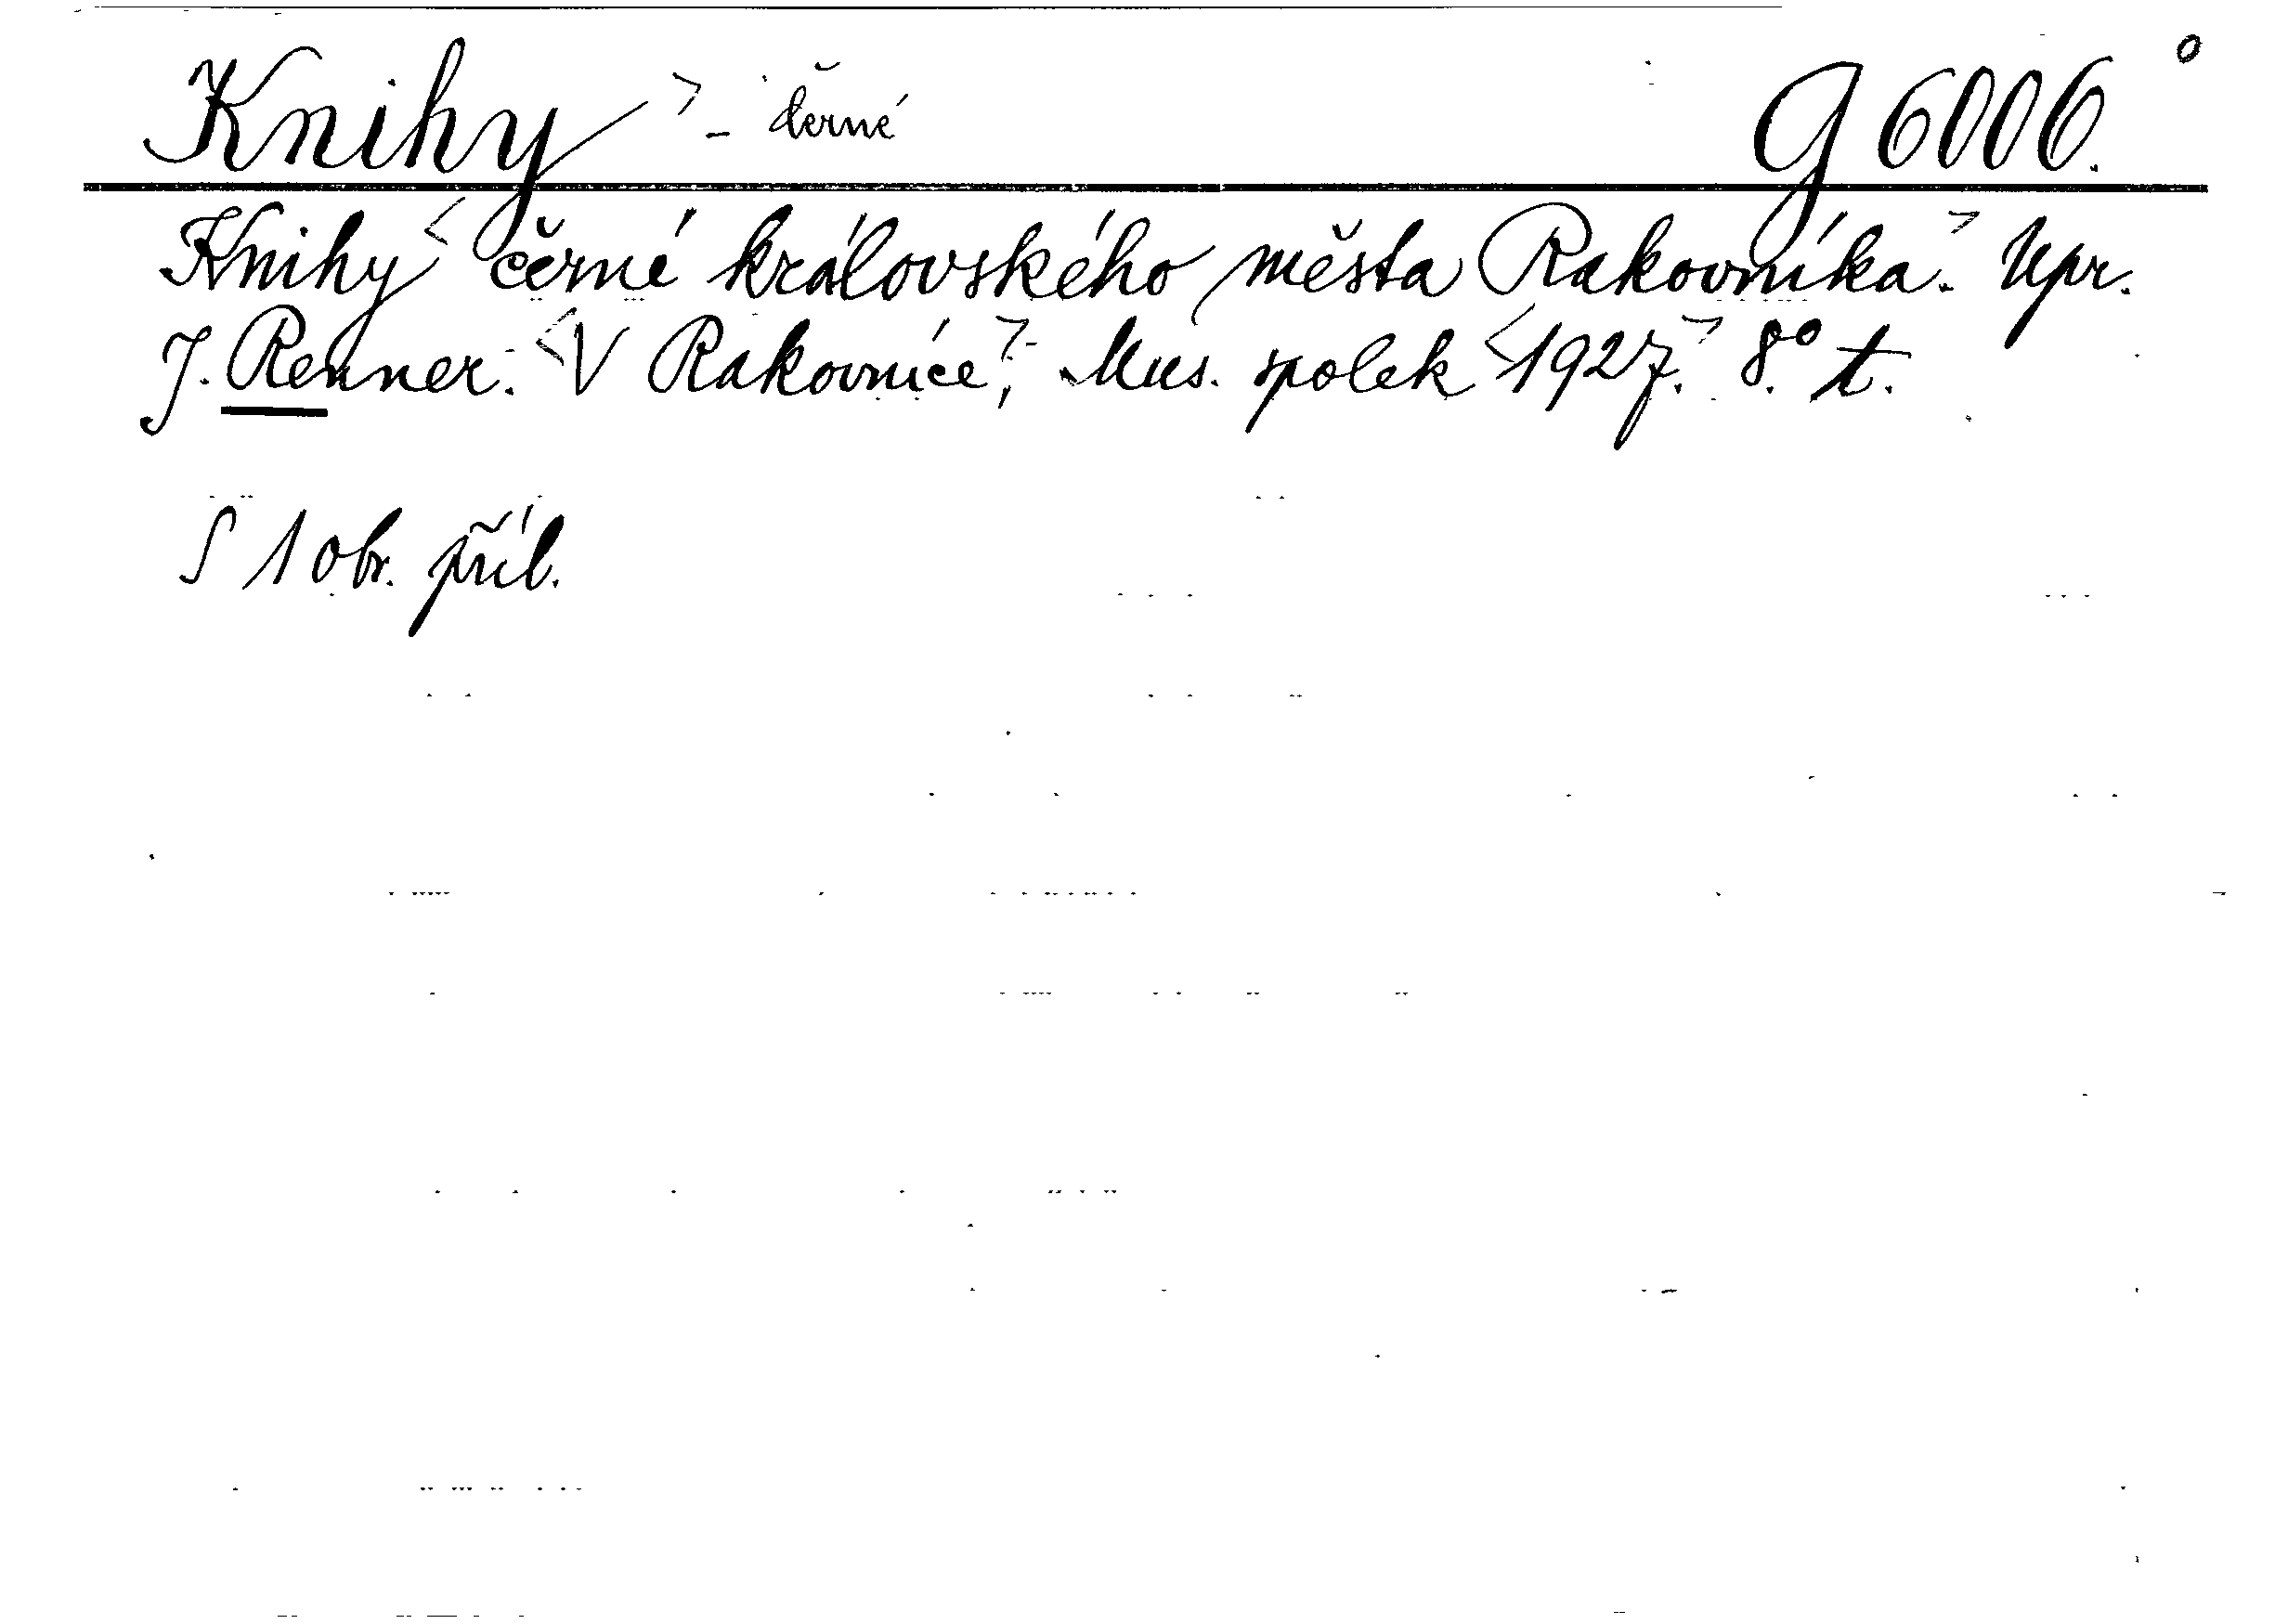 Knihy > - černé G 6006. o
Knihy < černé královského města Rakovníka. > Upr.
J. Renner. < V Rakovníce >, Mus. spolek < 1927. > 8.° t.
S 1 obr. příl.